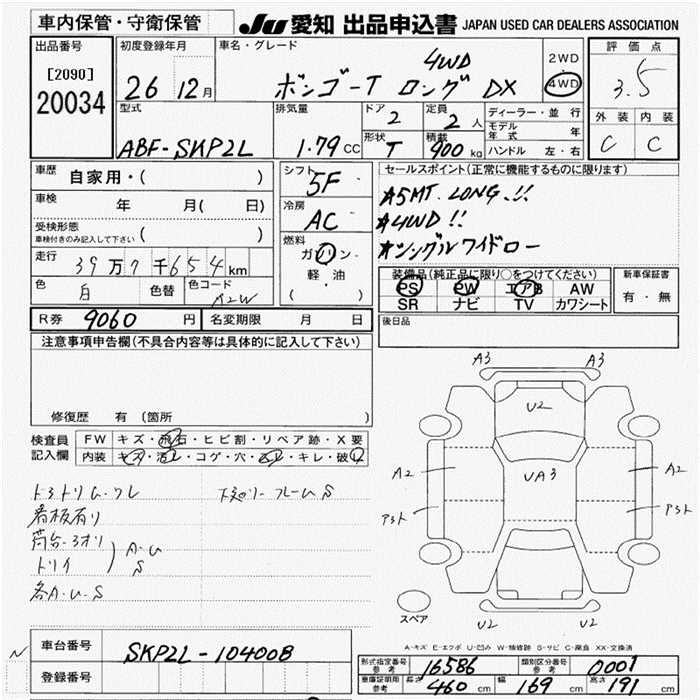 車内保管・守衛保管
JU 愛知 出品申込書 JAPAN USED CAR DEALERS ASSOCIATION
出品番号
[2090]
20034
初度登録年月
26 12月
車名・グレード
4WD
ボンゴーT ロング DX
2WD
4WD
評価点
3.5
外装 内装
C C
型式
ABF-SKP2L
排気量
1.79 CC
ドア 2
形状 T
定員 2人
積載 900 kg
ディーラー・並行
モデル年式 年
ハンドル 左・右
車歴 自家用・( )
車検 年 月( 日)
受検形態
車検付きのみ記入して下さい ( )
走行 39万7千654km
色 白 色替 色コード A2W
シフト 5F
冷房 AC
燃料
ガソリン・
軽・油
( )
セールスポイント(正常に機能するものに限ります)
★5MT. LONG.!!
★4WD!!
★シングルワイドロー
装備品(純正品に限り○をつけてください)
PS PW エアB AW
SR ナビ TV カワシート
新車保証書
有・無
後日品
R券 9060 円 名変期限 月 日
注意事項申告欄(不具合内容等は具体的に記入して下さい)
修復歴 有(箇所 )
検査員記入欄
FW キズ・飛石・ヒビ割・リペア跡・X要
内装 キズ・汚レ・コゲ・穴・ムレ・キレ・破レ
トラトリム・ワレ
看板有り
荷台・ヨオリ
トリイ
A・U
S
各A・U・S
下廻リーフレームS
A3 A3
U2
A2 UA3 A2
Pｽﾄ Pｽﾄ
U2 U2
スペア
A-キズ E-エクボ U-凹み W-補修跡 S-サビ C-腐食 XX-交換済
N
車台番号 SKP2L-104008
登録番号
型式指定番号 参考 16586 類別区分番号 参考 0001
車庫証明用 参考 長さ 460 cm 幅 169 cm 高さ 191 cm